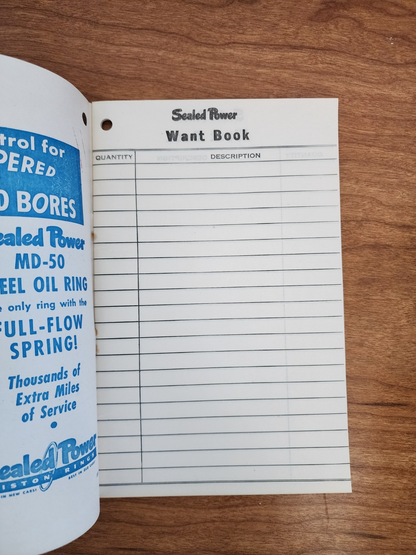 trol for
PERED
O BORES
ealed Power
MD-50
EEL OIL RING
only ring with the
ULL-FLOW
SPRING!
Thousands of
Extra Miles
of Service
Sealed Power
ISTON RINGS
IN NEW CARS! BEST IN OLD CARS!
Sealed Power
Want Book
QUANTITY DESCRIPTION